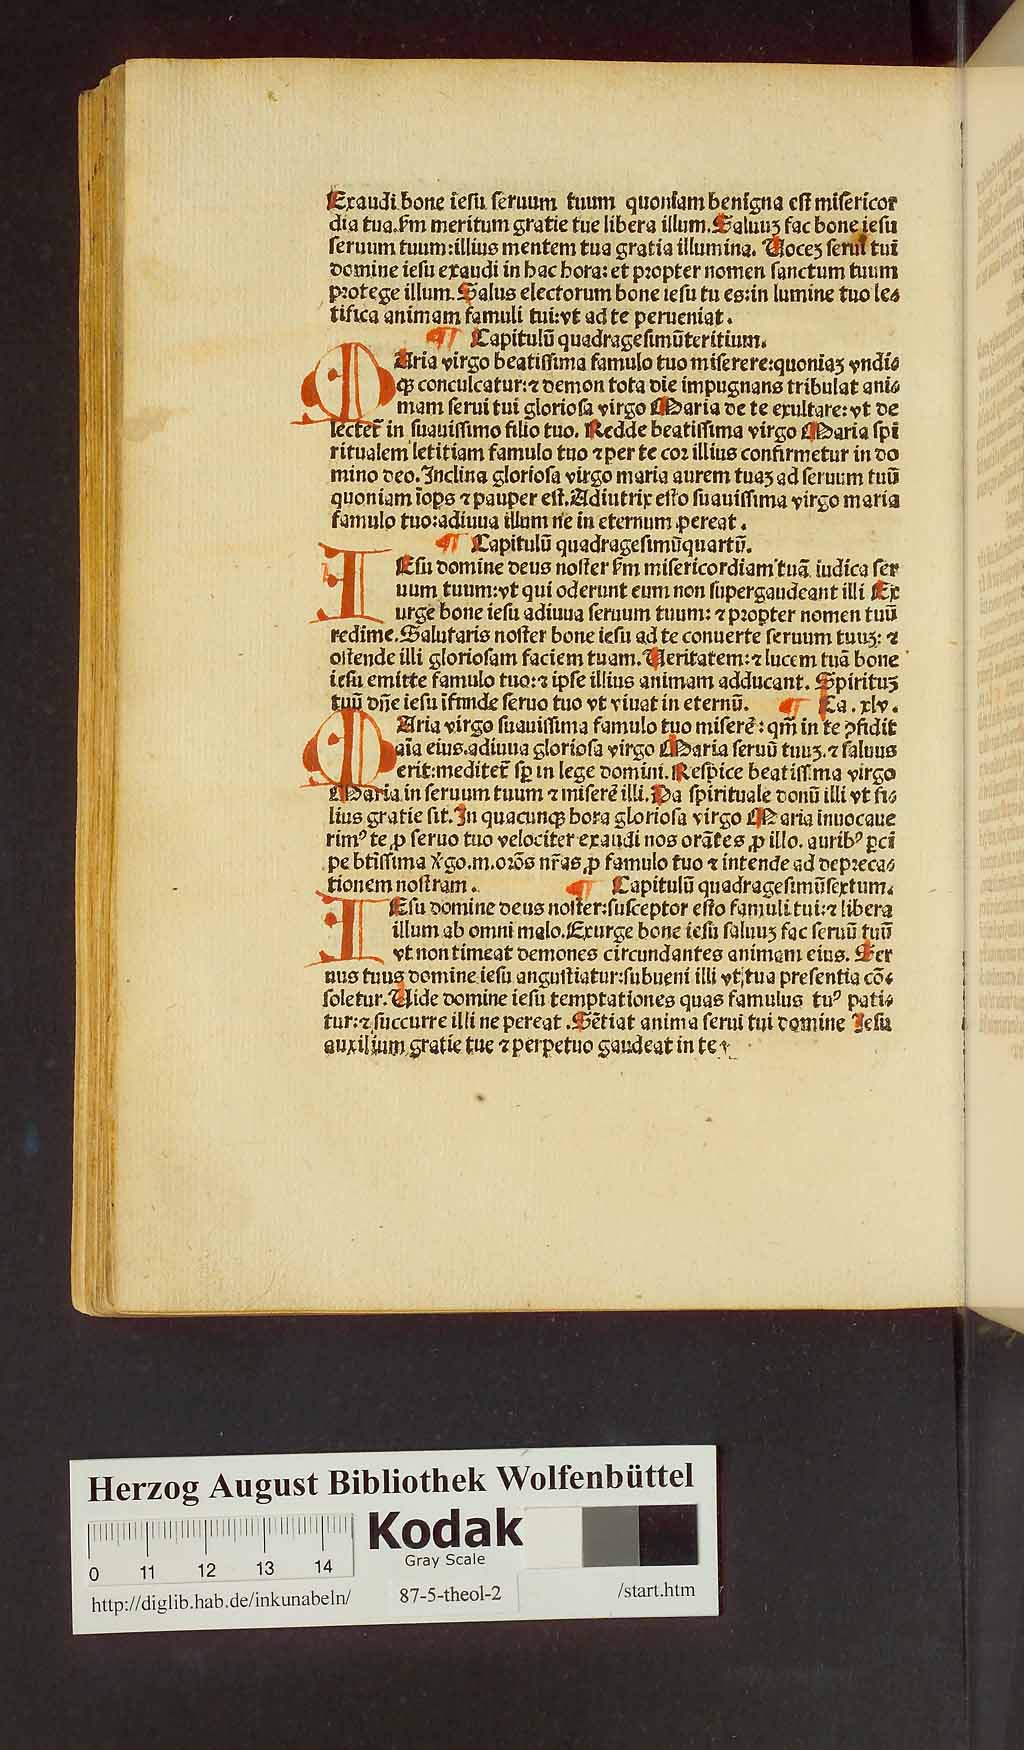 Exaudi bone iesu seruum tuum quoniam benigna est misericor
dia tua. s̄m meritum gratie tue libera illum. Saluuꝫ fac bone iesu
seruum tuum: illius mentem tua gratia illumina. Uoceꝫ serui tui
domine iesu exaudi in hac hora: et propter nomen sanctum tuum
protege illum. Salus electorum bone iesu tu es: in lumine tuo le⸗
tifica animam famuli tui: vt ad te perueniat.
¶ Capitulū quadragesimūteritium.
MAria virgo beatissima famulo tuo miserere: quoniaꝫ vndi⸗
qꝫ conculcatur: ⁊ demon tota die impugnans tribulat ani⸗
mam serui tui gloriosa virgo Maria de te exultare: vt de
lectet᷑ in suauissimo filio tuo. Redde beatissima virgo Maria spi
ritualem letitiam famulo tuo ⁊ per te cor illius confirmetur in do
mino deo. Inclina gloriosa virgo maria aurem tuaꝫ ad seruum tuū
quoniam īops ⁊ pauper est. Adiutrix esto suauissima virgo maria
famulo tuo: adiuua illum ne in eternum pereat.
¶ Capitulū quadragesimūquartū.
IEsu domine deus noster s̄m misericordiam tuā iudica ser
uum tuum: vt qui oderunt eum non supergaudeant illi Ex
urge bone iesu adiuua seruum tuum: ⁊ propter nomen tuū
redime. Salutaris noster bone iesu ad te conuerte seruum tuuꝫ: ⁊
ostende illi gloriosam faciem tuam. Ueritatem: ⁊ lucem tuā bone
iesu emitte famulo tuo: ⁊ ipse illius animam adducant. Spirituꝫ
tuū dn̄e iesu īfunde seruo tuo vt viuat in eternū. ¶ Ca. xlv.
MAria virgo suauissima famulo tuo miserē: qm̄ in te ꝯfidit
aīa eius. adiuua gloriosa virgo Maria seruū tuuꝫ. ⁊ saluus
erit: meditet᷑ sp̄ in lege domini. Respice beatissima virgo
Maria in seruum tuum ⁊ miserē illi. Da spirituale donū illi vt fi⸗
lius gratie sit. In quacunqꝫ hora gloriosa virgo Maria inuocaue
rimꝰ te ꝓ seruo tuo velociter exaudi nos orātes ꝓ illo. auribꝰ ꝑci
pe btīssima v̄go. m. orōs nr̄as ꝓ famulo tuo ⁊ intende ad depreca⸗
tionem nostram. ¶ Capitulū quadragesimūsextum.
IEsu domine deus noster: susceptor esto famuli tui: ⁊ libera
illum ab omni malo. Exurge bone iesu saluuꝫ fac seruū tuū
vt non timeat demones circundantes animam eius. Ser
uus tuus domine iesu angustiatur: subueni illi vt tua presentia cō⸗
soletur. Uide domine iesu temptationes quas famulus tuꝰ pati⸗
tur: ⁊ succurre illi ne pereat. Sētiat anima serui tui domine Iesu
auxilium gratie tue ⁊ perpetuo gaudeat in te
Herzog August Bibliothek Wolfenbüttel
Kodak
Gray Scale
0 11 12 13 14
http://diglib.hab.de/inkunabeln/ 87-5-theol-2 /start.htm